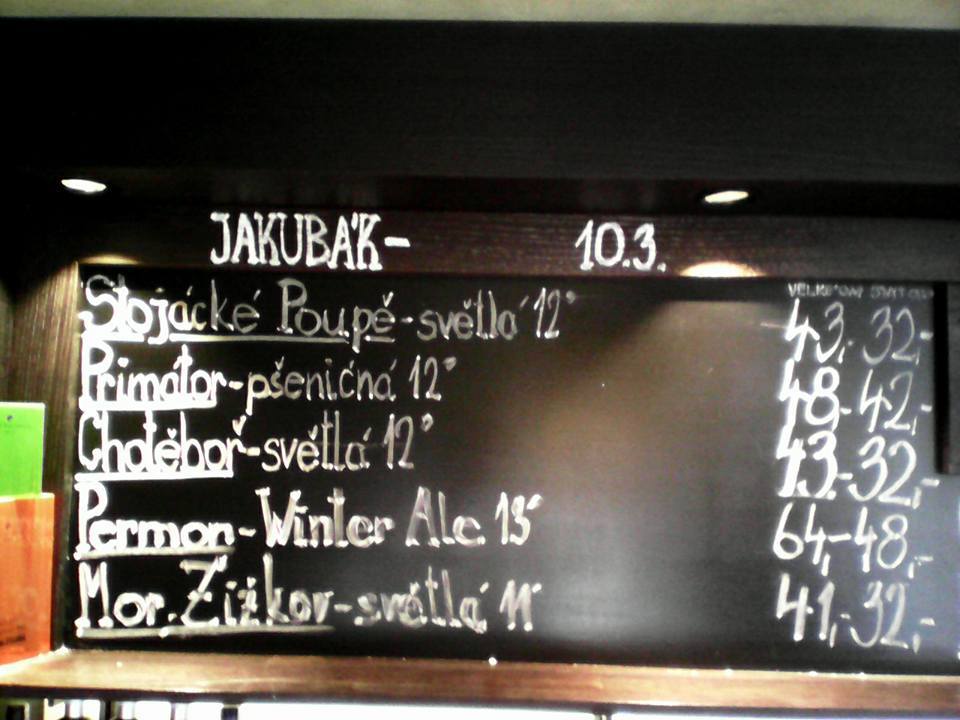 JAKUBÁK- 10.3.
Slojácké Poupě-světlá 12° 43,- 32,-
Primátor-pšeničná 12° 48,- 42,-
Chotěboř-světlá 12° 43.- 32,-
Permon-Winter Ale 13° 64,- 48,-
Mor. Žižkov-světlá 11° 41,- 32,-